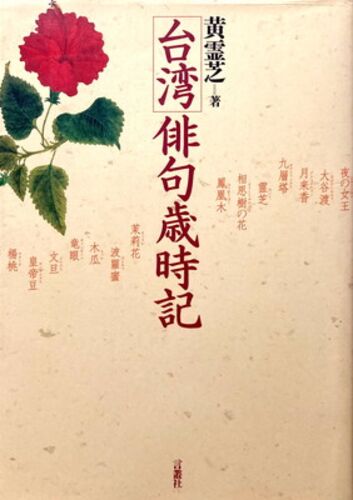 黄霊芝—著
台湾俳句歳時記
夜の女王
大谷渡
月来香
九層塔
霊芝
相思樹の花
鳳凰木
茉莉花
波羅蜜
木瓜
竜眼
文旦
皇帝豆
楊桃
言叢社